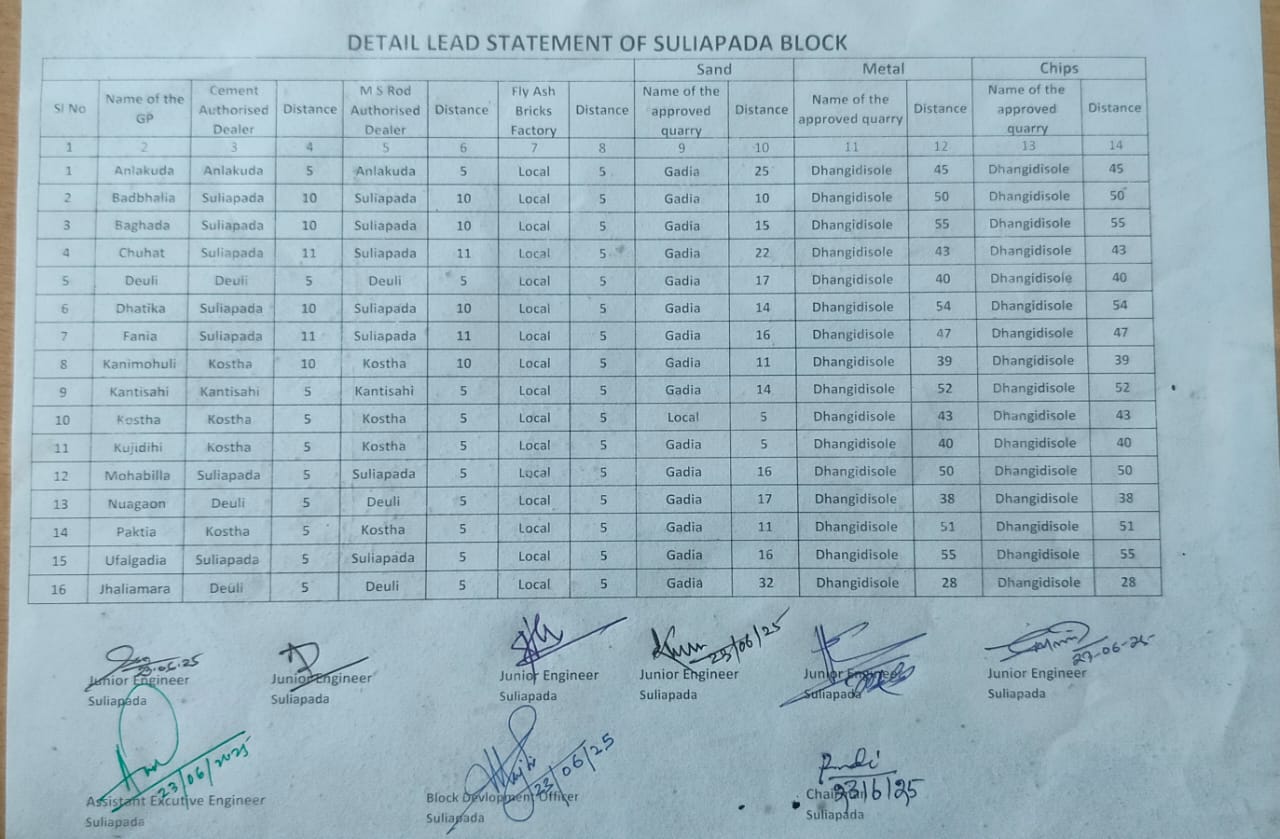 DETAIL LEAD STATEMENT OF SULIAPADA BLOCK
Sand Metal Chips
Sl No Name of the GP Cement Authorised Dealer Distance M S Rod Authorised Dealer Distance Fly Ash Bricks Factory Distance Name of the approved quarry Distance Name of the approved quarry Distance Name of the approved quarry Distance
1 2 3 4 5 6 7 8 9 10 11 12 13 14
1 Anlakuda Anlakuda 5 Anlakuda 5 Local 5 Gadia 25 Dhangidisole 45 Dhangidisole 45
2 Badbhalia Suliapada 10 Suliapada 10 Local 5 Gadia 10 Dhangidisole 50 Dhangidisole 50
3 Baghada Suliapada 10 Suliapada 10 Local 5 Gadia 15 Dhangidisole 55 Dhangidisole 55
4 Chuhat Suliapada 11 Suliapada 11 Local 5 Gadia 22 Dhangidisole 43 Dhangidisole 43
5 Deuli Deuli 5 Deuli 5 Local 5 Gadia 17 Dhangidisole 40 Dhangidisole 40
6 Dhatika Suliapada 10 Suliapada 10 Local 5 Gadia 14 Dhangidisole 54 Dhangidisole 54
7 Fania Suliapada 11 Suliapada 11 Local 5 Gadia 16 Dhangidisole 47 Dhangidisole 47
8 Kanimohuli Kostha 10 Kostha 10 Local 5 Gadia 11 Dhangidisole 39 Dhangidisole 39
9 Kantisahi Kantisahi 5 Kantisahi 5 Local 5 Gadia 14 Dhangidisole 52 Dhangidisole 52
10 Kostha Kostha 5 Kostha 5 Local 5 Local 5 Dhangidisole 43 Dhangidisole 43
11 Kujidihi Kostha 5 Kostha 5 Local 5 Gadia 5 Dhangidisole 40 Dhangidisole 40
12 Mohabilla Suliapada 5 Suliapada 5 Local 5 Gadia 16 Dhangidisole 50 Dhangidisole 50
13 Nuagaon Deuli 5 Deuli 5 Local 5 Gadia 17 Dhangidisole 38 Dhangidisole 38
14 Paktia Kostha 5 Kostha 5 Local 5 Gadia 11 Dhangidisole 51 Dhangidisole 51
15 Ufalgadia Suliapada 5 Suliapada 5 Local 5 Gadia 16 Dhangidisole 55 Dhangidisole 55
16 Jhaliamara Deuli 5 Deuli 5 Local 5 Gadia 32 Dhangidisole 28 Dhangidisole 28
23/06/25
Junior Engineer Junior Engineer Junior Engineer Junior Engineer Junior Engineer Junior Engineer
Suliapada Suliapada Suliapada Suliapada Suliapada Suliapada
23/06/2025 23/06/25 23/6/25
Assistant Excutive Engineer Block Devlopment Officer Chairman
Suliapada Suliapada Suliapada